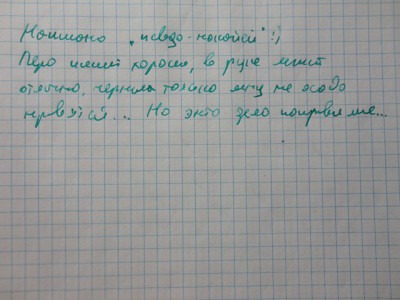 Написано "псевдо-кокойей" :)
Перо пишет хорошо, в руке лежит
отлично, чернила только ему не особо
нравятся... Но это дело поправимое...